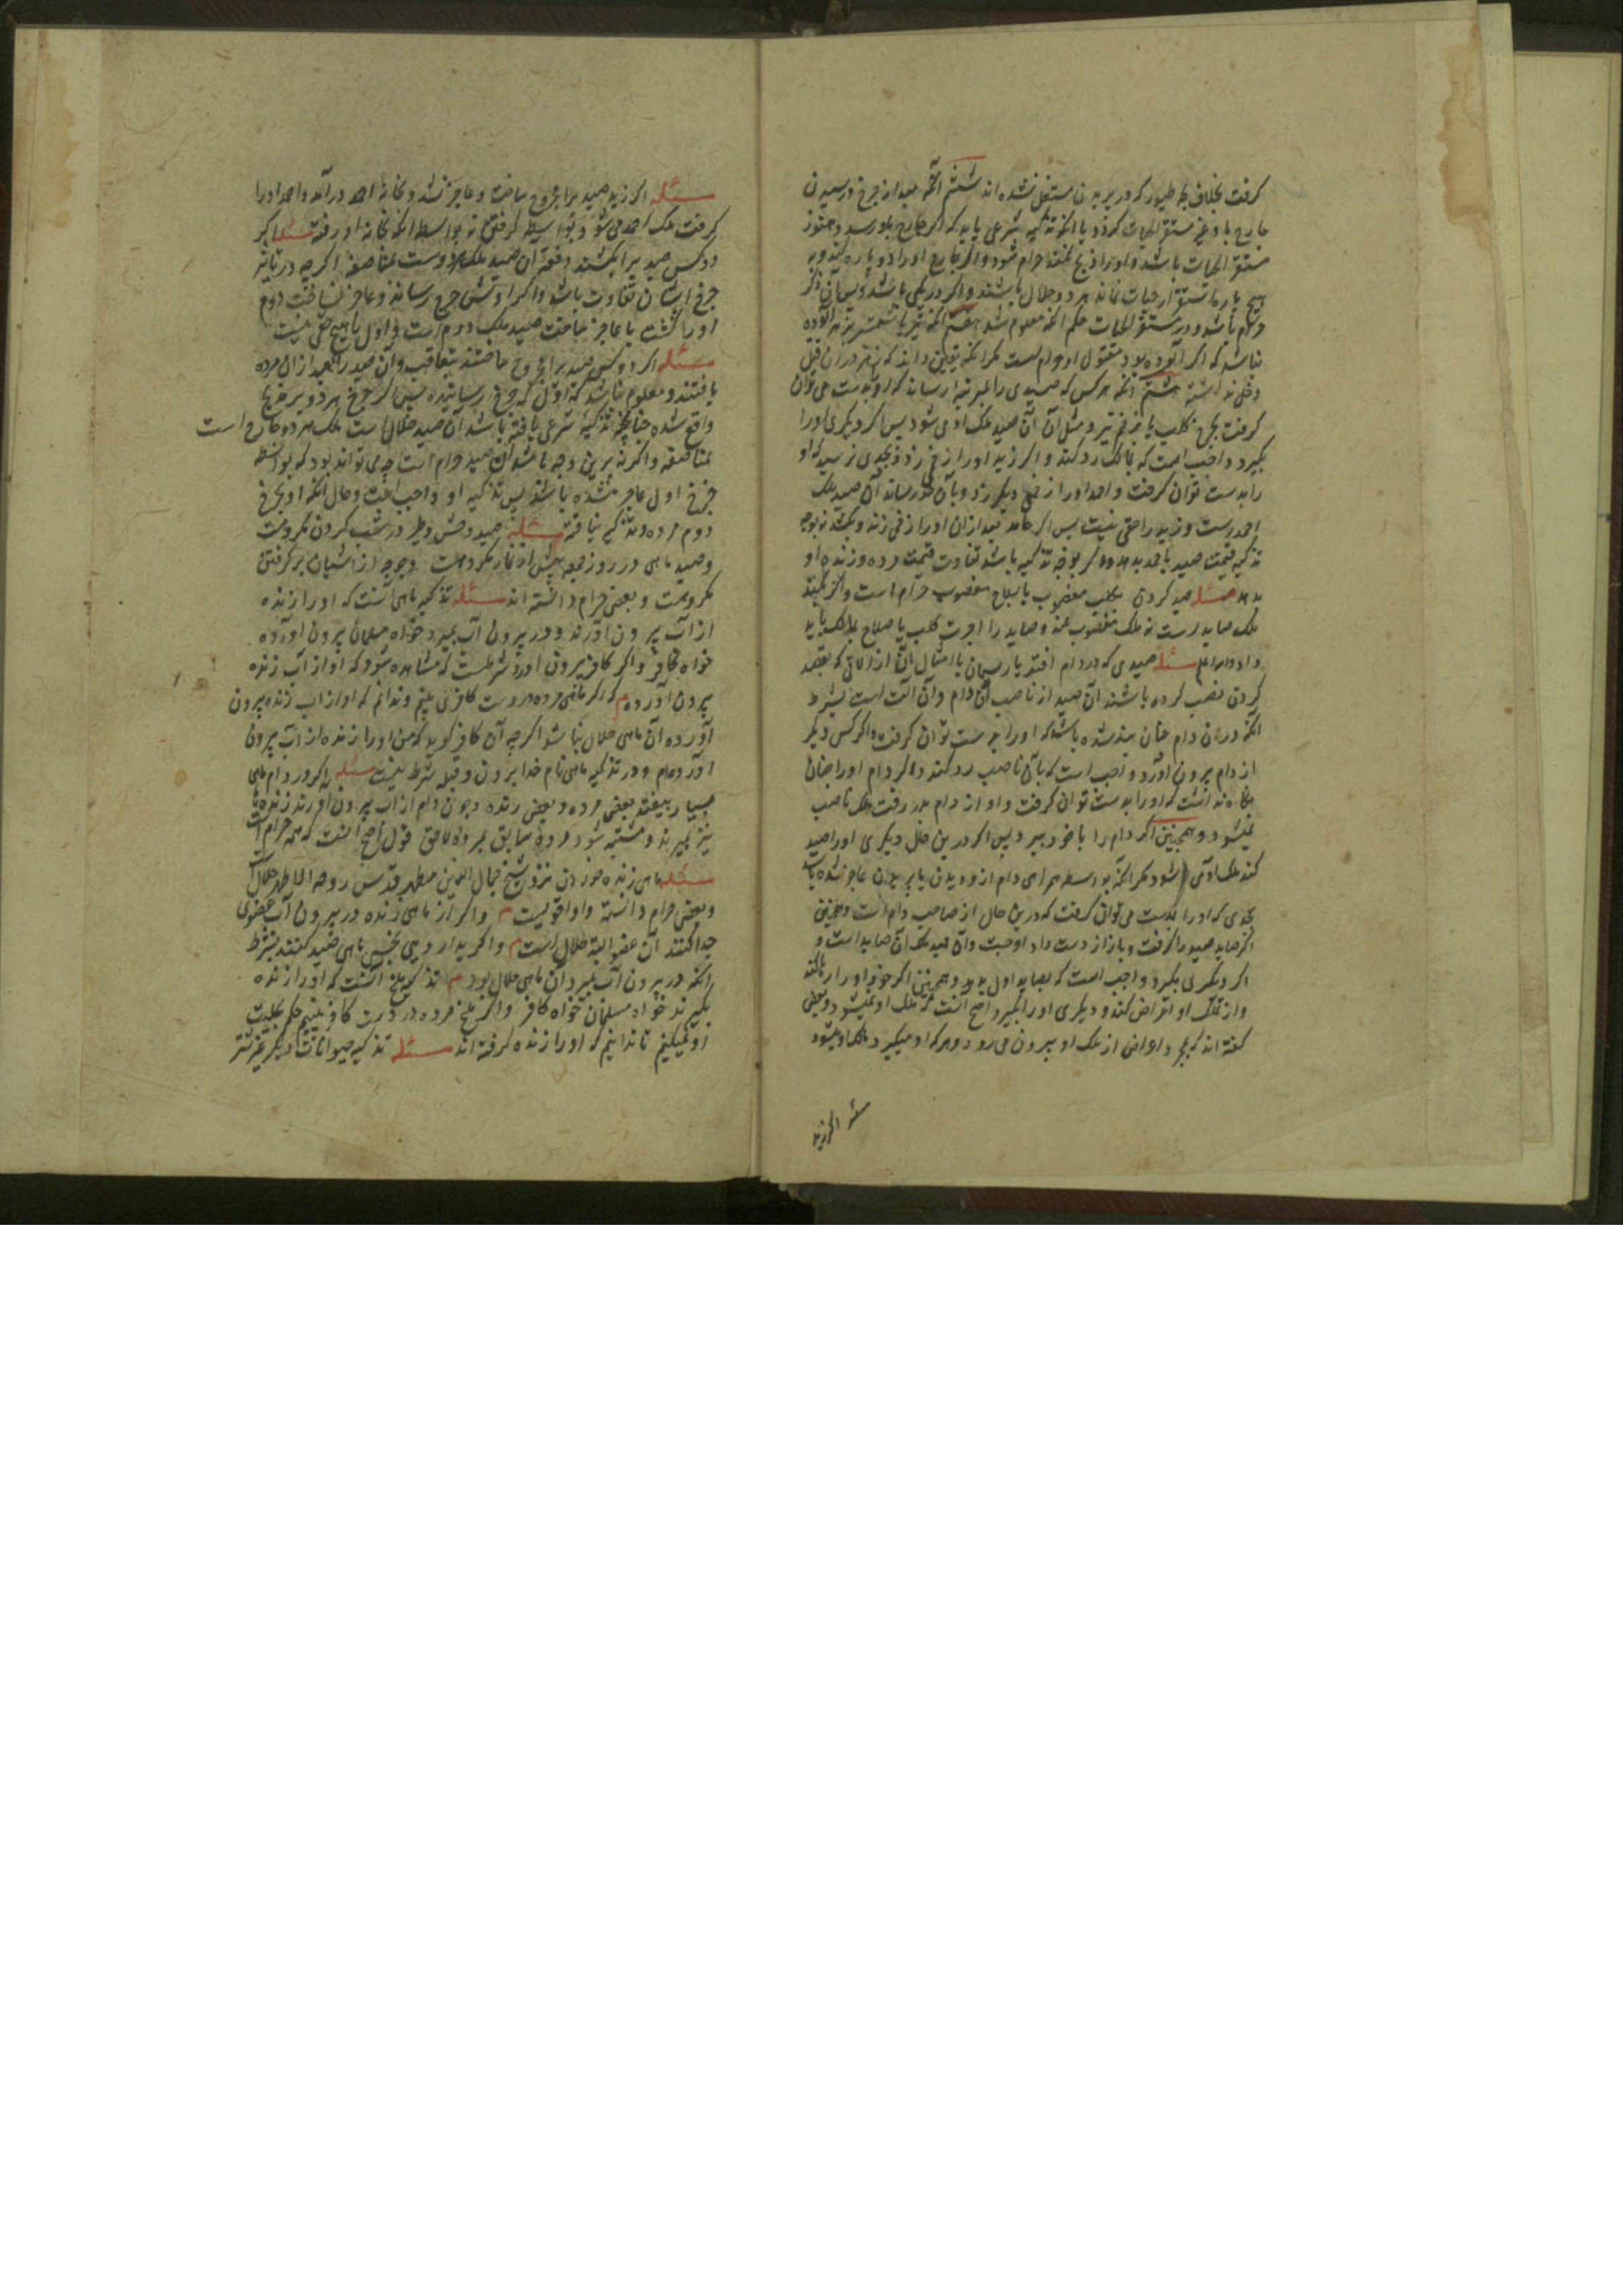 گرفت بخلاف بچه طیور که در پریدن مستقل نشده اند ششم آنکه بعد از جرح و رسیدن
جارح با و غیر مستقر الحیات گردد یا آنکه تذکیه شرعی یابد که اگر جارح باو رسد و هنوز
مستقر الحیات باشد و او را ذبح نکند حرام شود و اگر جارح او را دو پاره کند و بر
هیچ پاره مستقر از حیات نماند هر دو حلال باشند و اگر در یکی باشد پس آن دیگر
حرام باشد و در مستقر الحیات حکم آنکه معلوم شد هفتم آنکه تیر یا شمشیر بزهر آلوده
نباشد که اگر آلوده بود مقتول او حرام است مگر آنکه یقین داند که زهر در آن قتل
دخلی نداشته هشتم آنکه هر کس که صیدی را بمرتبه رساند که او بدست می توان
گرفت بجرح کلب یا بزخم تیر و مثل آن آن صید ملک او می شود پس اگر دیگری او را
بگیرد واجب است که بمالک رد کند و اگر زید او را زخمی زد و بحدی نرسید که او
را بدست توان گرفت و احمد او را زخمی دیگر زد و بآن حد رساند آن صید ملک
احمدست و زید را حقی نیست پس اگر بعد از آن او را زخمی زند و بکشد نه بوجه
تذکیه قیمت صید باحمد بدهد و اگر بوجه تذکیه باشد تفاوت قیمت مرده و زنده او
بدهد مسئله صید کردن بکلب مغصوب یا بسلاح مغصوب حرام است و اگر بکند
ملک صایدست نه ملک مغصوب عنه و صاید را اجرت کلب یا سلاح بمالک باید
داد مسئله صیدی که در دام افتد یا ریسمان یا امثال آن از آلاتی که بقصد
کردن نصب کرده باشند آن صید از ناصب آن دام و آن آلت است بشرط
آنکه در آن دام چنان بند شده باشد که او را بدست توان گرفت و اگر کس دیگر
از دام بیرون آورد واجب است که بآن ناصب رد کند و اگر دام او را چنان
نگاه نداشت که او را بدست توان گرفت و او از دام بدر رفت ملک ناصب
نمیشود و همچنین اگر دام را با خود ببرد پس اگر درین حال دیگری او را صید
کند ملک آن شود مگر آنکه بواسطه همراهی دام از دویدن یا پریدن عاجز شده باشد
بحدی که او را بدست می توان گرفت که درین حال از صاحب دام است و همچنین
اگر صاید صید را گرفت و باز از دست داد او جست و آن صید ملک آن صاید است و
اگر دیگری بگیرد واجب است که بصاید اول بدهد و همچنین اگر خود او را رها کند
و از ملک او اعراض کند و دیگری او را بگیرد اصح آنست که ملک او نمیشود و بعضی
گفته اند که بمجرد اعراض از ملک او بیرون می رود و هر که او میگیرد ملک او میشود
مسئله اگر زید
مسئله اگر زید صید را مجروح ساخت و عاجز نشد و بخانه احمد درآمد و احمد او را
گرفت ملک احمد می شود بواسطه گرفتن نه بواسطه آنکه بخانه او رفته مسئله اگر
دو کس صید را بکشند دفعة آن صید ملک هر دوست بمناصفه اگر چه در تاثیر
جرح ایشان تفاوت باشد و اگر اولش جرح رساند و عاجز نساخت دوم
او را کشت یا عاجز ساخت صید ملک دوم است و اول را هیچ حقی نیست
مسئله اگر دو کس صید را مجروح ساختند بتعاقب و آن صید را بعد از آن مرده
یافتند و معلوم نباشد که اول که جرح رسانیده پس اگر جرح هر دو بر مذبح
واقع شده چنانچه تذکیه شرعی یافته باشد آن صید حلال است ملک هر دو جارح است
بمناصفه و اگر نه برین وجه باشد آن صید حرام است چه می تواند بود که بواسطه
جرح اول عاجز شده باشد پس تذکیه او واجب است و حال آنکه او بجرح
دوم مرده و تذکیه نیافته مسئله صید وحش و طیر در شب کردن مکروهست
و صید ماهی در روز جمعه پیش از نماز مکروهست و جوجه از آشیان برگرفتن
مکروهست و بعضی حرام دانسته اند مسئله تذکیه ماهی آنست که او را زنده
از آب بیرون آورند و در بیرون آب بمیرد خواه مسلمان بیرون آورده
خواه کافر و اگر کافر بیرون آورد شرطست که مشاهده شود که او از آب زنده
بیرون آورده م که اگر ماهی مرده در دست کافری بینیم و ندانیم که او از آب زنده بیرون
آورده آن ماهی حلال نباشد اگر چه آن کافر گوید که من او را زنده از آب بیرون
آورده ام و در تذکیه ماهی نام خدا بردن و قبله شرط نیست مسئله اگر در دام ماهی
بسیار بیفتد بعضی مرده و بعضی زنده و چون دام از آب بیرون آورند زنده ها
نیز بمیرند و مشتبه شود مرده سابق بمرده لاحق قول اصح آنست که همه حرام است
مسئله ماهی زنده خوردن نزد شیخ جمال الدین مطهر قدس روحه الاطهر حلال است
و بعضی حرام دانسته و او اقویست م و اگر از ماهی زنده در بیرون آب عضوی
جدا کنند آن عضو البته حلال است م و اگر بدارویی نجس ماهی صید کنند بشرط
آنکه در بیرون آب بمیرد آن ماهی حلال بود م تذکیه ملخ آنست که او را زنده
بگیرند خواه مسلمان خواه کافر و اگر ملخ مرده در دست کافر بینیم حکم بحلیت
او نمیکنیم تا ندانیم که او را زنده گرفته اند مسئله تذکیه حیوانات دیگر غیر شتر